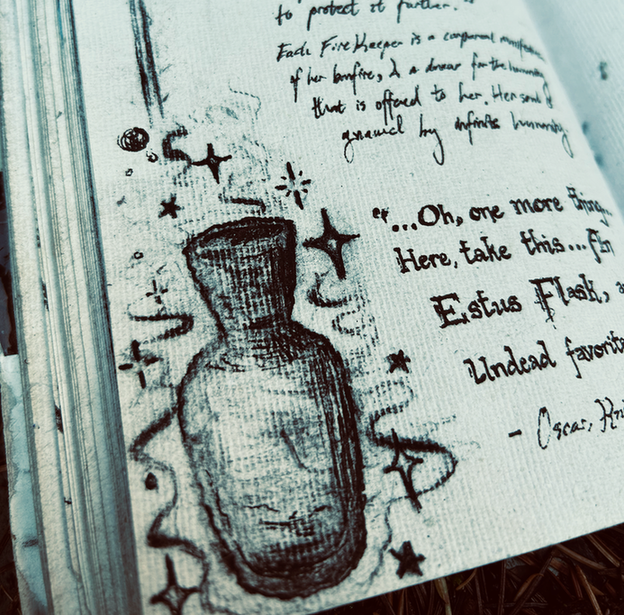 to protect it further."
Each Fire Keeper is a corporeal manifestation
of her bonfire, & a draw for the humanity
that is offered to her. Her soul is
gnawed by infinite humanity
"...Oh, one more thing...
Here, take this... An
Estus Flask, a
Undead favorite
- Oscar, Kni